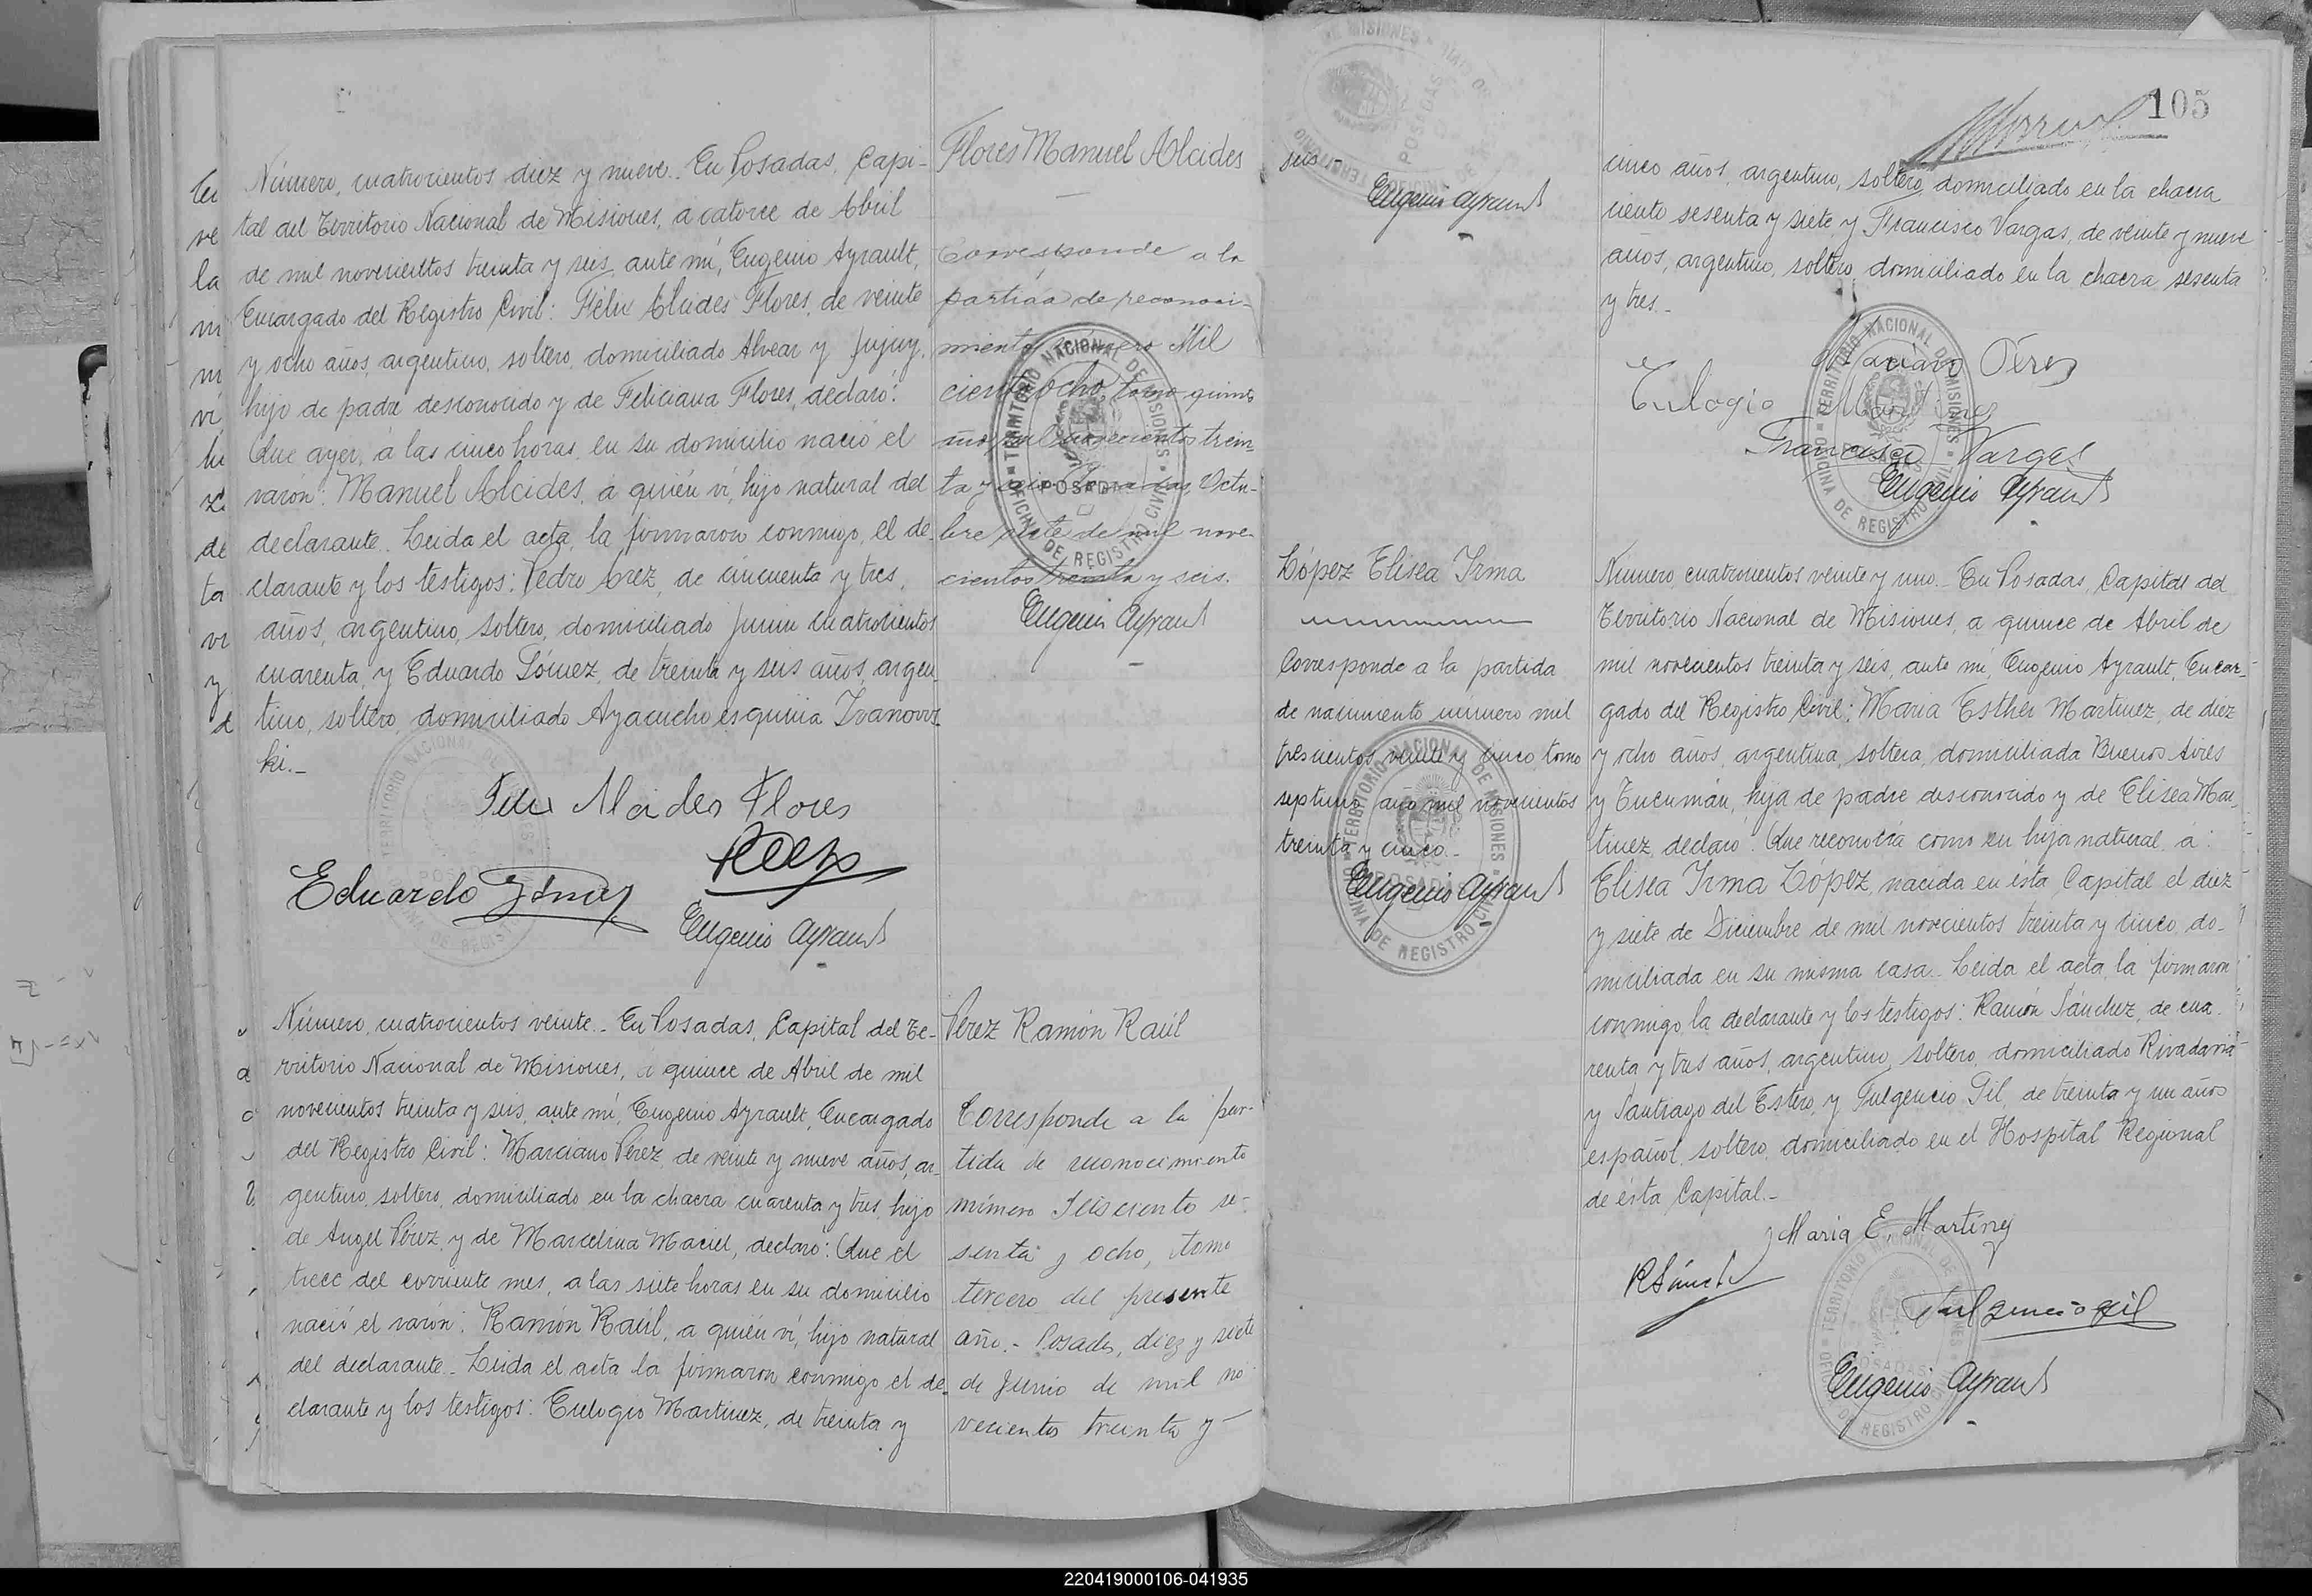 Número, cuatrocientos diez y nueve.. En Posadas, Capi-
tal del Territorio Nacional de Misiones, a catorce de Abril
de mil novecientos treinta y seis, ante mí, Eugenio Ayrault,
Encargado del Registro Civil: Félix Alcides Flores, de veinte
y ocho años, argentino, soltero, domiciliado Alvear y Jujuy,
hijo de padre desconocido y de Feliciana Flores, declaró:
Que ayer, a las cinco horas, en su domicilio nació el
varón: Manuel Alcides, a quién ví, hijo natural del
declarante. Leida el acta, la firmaron conmigo, el de-
clarante y los testigos: Pedro Baez, de cincuenta y tres
años, argentino, soltero, domiciliado Junin cuatrocientos
cuarenta, y Eduardo Gómez, de treinta y seis años, argen
tino, soltero, domiciliado Ayacucho esquina Ivanows-
ki.-
Felix Alcides Flores
Eduardo Gómez
Eugenio Ayrault
Flores Manuel Alcides
Corresponde a la
partida de reconoci-
miento número Mil
ciento ocho, tomo quinto
año mil novecientos trein-
ta y seis. Posadas, Octu-
bre siete de mil nove-
cientos treinta y seis.
Eugenio Ayrault
TERRITORIO NACIONAL DE MISIONES
POSADAS
OFICINA DE REGISTRO CIVIL
Número, cuatrocientos veinte.- En Posadas, Capital del Te-
rritorio Nacional de Misiones, a quince de Abril de mil
novecientos treinta y seis, ante mí, Eugenio Ayrault, Encargado
del Registro Civil: Marciano Pérez, de veinte y nueve años, ar-
gentino, soltero, domiciliado en la chacra cuarenta y tres, hijo
de Angel Pérez y de Marcelina Maciel, declaró: Que el
trece del corriente mes, a las siete horas en su domicilio
nació el varón: Ramón Raúl, a quién ví, hijo natural
del declarante.- Leida el acta la firmaron conmigo el de-
clarante y los testigos: Eulogio Martinez, de treinta y
Pérez Ramón Raúl
Corresponde a la par-
tida de reconocimiento
número Seisciento se-
senta y ocho, tomo
tercero del presente
año.- Posadas, diez y siete
de Junio de mil no
vecientos treinta y
seis-
Eugenio Ayrault
105
cinco años, argentino, soltero, domiciliado en la chacra
ciento sesenta y siete y Francisco Vargas, de veinte y nueve
años, argentino, soltero, domiciliado en la chacra sesenta
y tres.-
Marciano Pérez
Eulogio Martinez
Francisco Vargas
Eugenio Ayrault
TERRITORIO NACIONAL DE MISIONES
OFICINA DE REGISTRO CIVIL
López Elisea Irma
Corresponde a la partida
de nacimiento número mil
trescientos veinte y cinco, tomo
septimo, año mil novecientos
treinta y cinco.-
Eugenio Ayrault
TERRITORIO NACIONAL DE MISIONES
POSADAS
OFICINA DE REGISTRO CIVIL
Número, cuatrocientos veinte y uno.- En Posadas, Capital del
Territorio Nacional de Misiones, a quince de Abril de
mil novecientos treinta y seis, ante mí, Eugenio Ayrault, Encar-
gado del Registro Civil: Maria Esther Martinez, de diez
y ocho años, argentina, soltera, domiciliada Buenos Aires
y Tucumán, hija de padre desconocido y de Elisea Mar-
tinez, declaró: Que reconocía como su hija natural, a:
Elisea Irma López, nacida en ésta Capital el diez
y siete de Diciembre de mil novecientos treinta y cinco, do-
miciliada en su misma casa.- Leida el acta, la firmaron
conmigo la declarante y los testigos: Ramón Sánchez, de cua-
renta y tres años, argentino, soltero, domiciliado Rivadavia
y Santiago del Estero, y Fulgencio Gil, de treinta y un años
español, soltero, domiciliado en el Hospital Regional
de ésta Capital.-
Maria E. Martinez
R Sánchez
Fulgencio Gil
Eugenio Ayrault
220419000106-041935